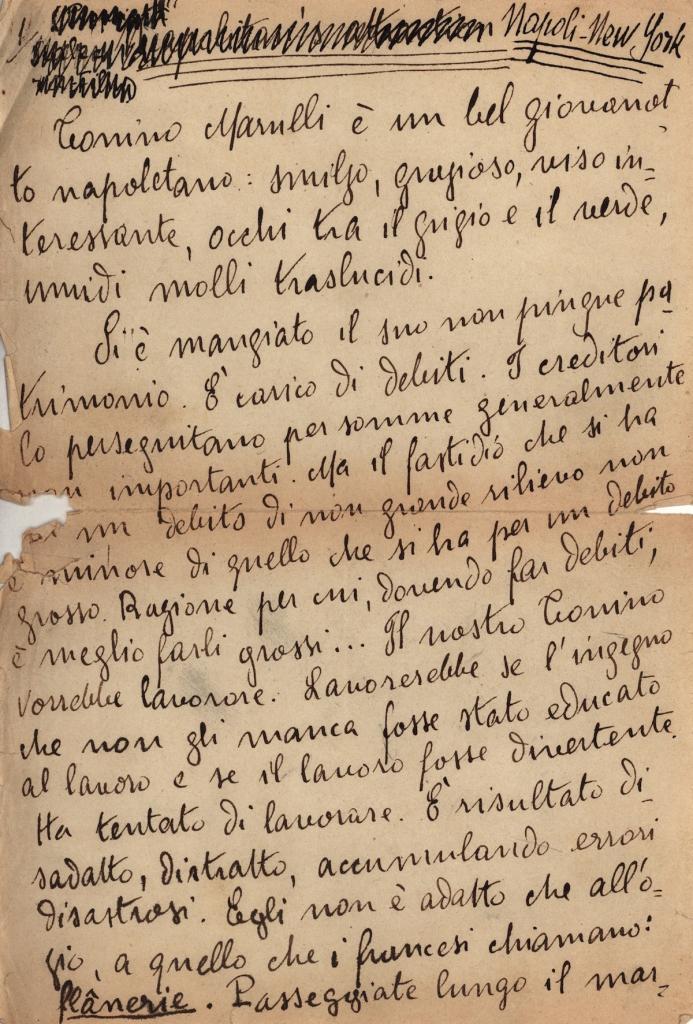 Napoli-New York
Tonino Marulli è un bel giovanot
to napoletano: smilzo, grazioso, viso in-
teressante, occhi tra il grigio e il verde,
umidi molli traslucidi.
Si è mangiato il suo non pingue pa-
trimonio. È carico di debiti. I creditori
lo perseguitano per somme generalmente
non importanti. Ma il fastidio che si ha
un debito di non grande rilievo non
è minore di quello che si ha per un debito
grosso. Ragione per cui, dovendo far debiti,
è meglio farli grossi... Il nostro Tonino
vorrebbe lavorare. Lavorerebbe se l'ingegno
che non gli manca fosse stato educato
al lavoro e se il lavoro fosse divertente.
Ha tentato di lavorare. È risultato di-
sadatto, distratto, accumulando errori
disastrosi. Egli non è adatto che all'o-
zio, a quello che i francesi chiamano:
flânerie. Passeggiate lungo il mar-